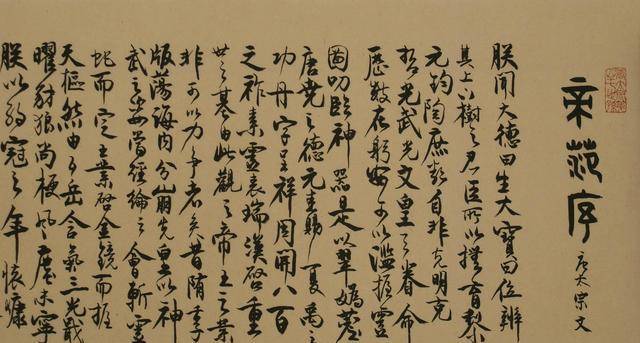 帝範序
唐太宗文
朕聞大德曰生大寶曰位辨
其上下樹之君臣所以撫育黎
元鈞陶庶類自非克明克
哲允武允文皇天眷命
歷數在躬安可以濫握靈
圖叨臨神器是以翠媯薦
唐堯之德元圭賜夏禹之
功丹字呈祥周開八百
之祚素靈表瑞漢啟重
世之基由此觀之帝王之業
非可以力爭者矣昔隋季
版蕩海內分崩先皇以神
武之姿當經綸之會斬靈
蛇而定王業啟金鏡而握
天樞然由五岳含氣三光戢
曜豺狼尚梗風塵未寧
朕以弱冠之年懷慷